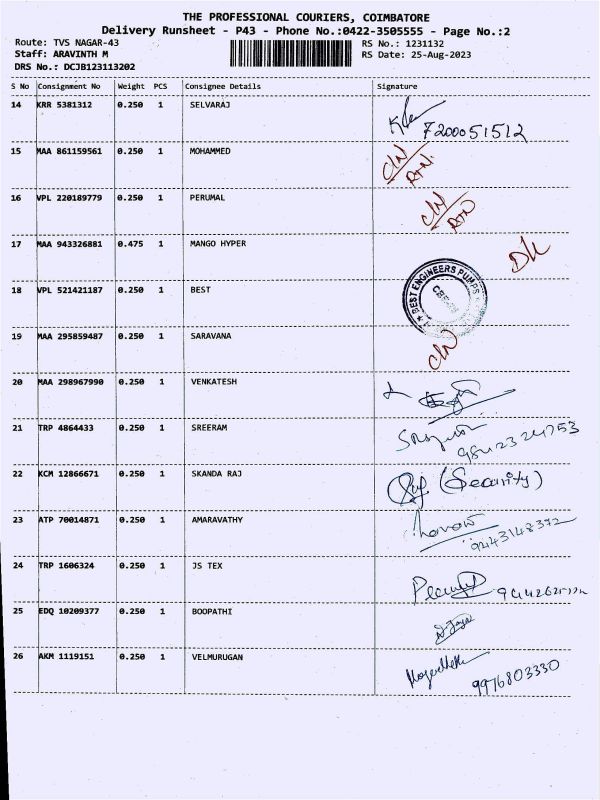 THE PROFESSIONAL COURIERS, COIMBATORE
Delivery Runsheet - P43 - Phone No.:0422-3505555 - Page No.:2
Route: TVS NAGAR-43 RS No.: 1231132
Staff: ARAVINTH M RS Date: 25-Aug-2023
DRS No.: DCJB123113202
S No Consignment No Weight PCS Consignee Details Signature
14 KRR 5381312 0.250 1 SELVARAJ
7200051512
15 MAA 861159561 0.250 1 MOHAMMED
C/N
RTN.
16 VPL 220189779 0.250 1 PERUMAL
C/N
RTN
17 MAA 943326881 0.475 1 MANGO HYPER
DL
18 VPL 521421187 0.250 1 BEST
BEST ENGINEERS PUMPS
19 MAA 295859487 0.250 1 SARAVANA
C/N
20 MAA 298967990 0.250 1 VENKATESH
21 TRP 4864433 0.250 1 SREERAM
9842324753
22 KCM 12866671 0.250 1 SKANDA RAJ
(Security)
23 ATP 70014871 0.250 1 AMARAVATHY
9443148372
24 TRP 1606324 0.250 1 JS TEX
25 EDQ 10209377 0.250 1 BOOPATHI
26 AKM 1119151 0.250 1 VELMURUGAN
9976803330